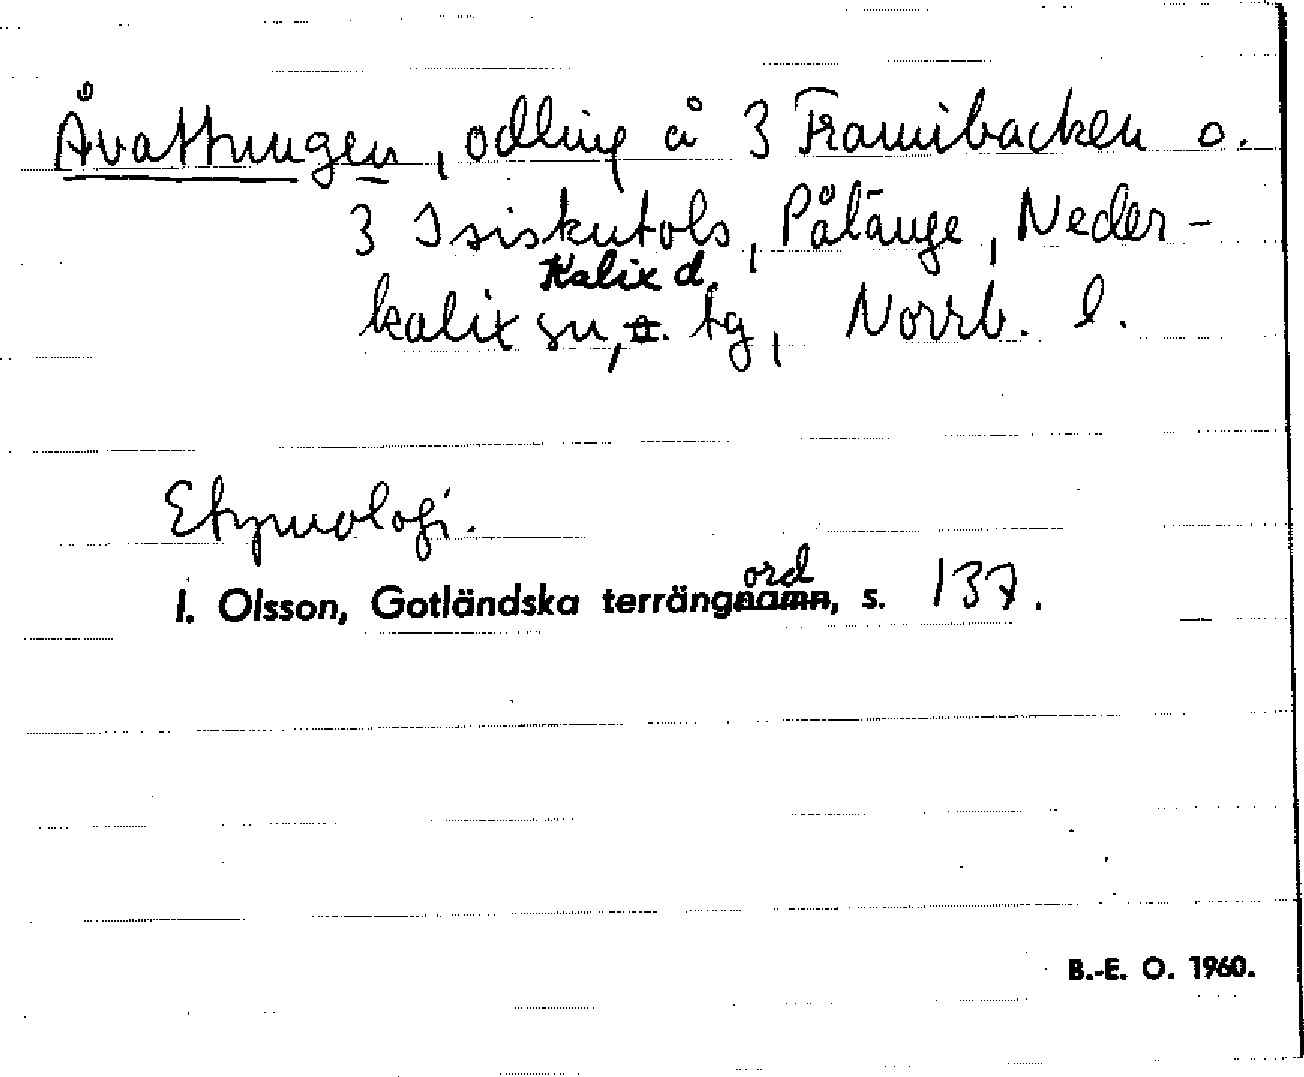 Åvattningen, odling å 3 Framibacken o.
3 Isiskutols, Pålänge, Neder-
Kalix d.
kalix sn, tg, Norrb. l.
Etymologi.
ord
I. Olsson, Gotländska terrängnamn, s. 137.
B.-E. O. 1960.